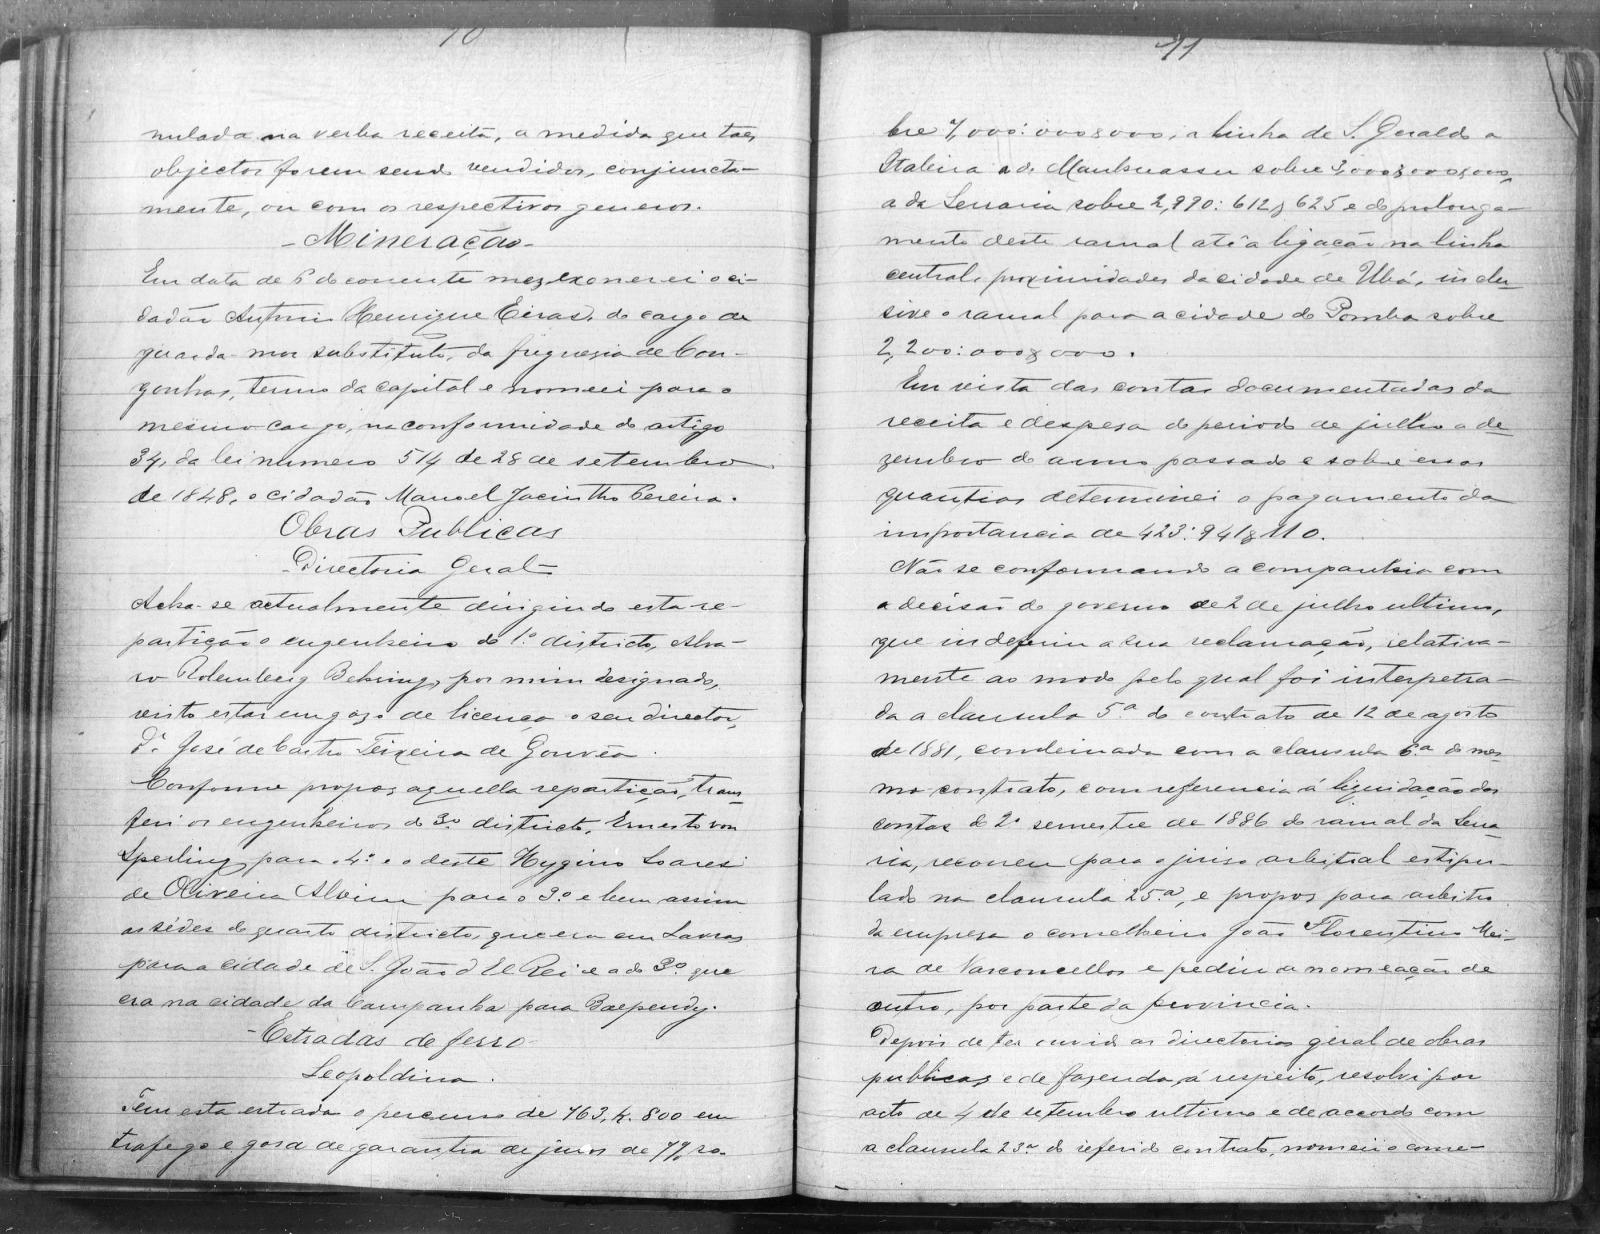 70
nulada na verba receita, a medida que taes
objectos forem sendo vendidos, conjuncta-
mente, ou com os respectivos generos.
- Mineração -
Em data de 6 do corrente mez exonerei o ci-
dadão Antonio Henrique Eiras, do cargo de
guarda-mor substituto, da freguesia de Con-
gonhas, termo da capital e nomeei para o
mesmo cargo, na conformidade do artigo
34, da lei numero 514 de 28 de setembro
de 1848, o cidadão Manoel Jacintho Pereira.
Obras Publicas
- Directoria Geral -
Acha-se actualmente dirigindo esta re-
partição o engenheiro do 1º districto, Alva-
ro Rolemberg Behring, por mim designado,
visto estar em goso de licença o seu director,
Dr José de Castro Teixeira de Gouvêa.
Conforme propos aquella repartição, trans-
feri os engenheiros do 3º districto, Ernesto von
Sperling, para o 4º e o deste Hygino Soares
de Oliveira Alvim para o 3º e bem assim
as sédes do quarto districto, que era em Lavras
para a cidade de S. João d'El Rei e a do 3º que
era na cidade da Campanha para Baependy.
- Estradas de ferro -
Leopoldina.
Tem esta estrada o percurso de 763, k. 800 em
trafego e gosa de garantia de juros de 7% so-
71
bre 7,000:000$000, a linha de S. Geraldo a
Itabira a do Manhuassu sobre 3,000$000$000,
a da Serraria sobre 2,990:612$625 e do prolonga-
mento deste ramal até a ligação na linha
central, proximidades da cidade de Ubá, inclu-
sive o ramal para a cidade do Pomba sobre
2,200:000$000.
Em vista das contas documentadas da
receita e despesa do periodo de julho a de-
zembro do anno passado e sobre essas
quantias determinei o pagamento da
importancia de 423:941$110.
Não se conformando a companhia com
a decisão do governo de 2 de julho ultimo,
que indeferiu a sua reclamação, relativa-
mente ao modo pelo qual foi interpetra-
da a clausula 5ª do contrato de 12 de agosto
de 1881, combinada com a clausula 6ª do mes-
mo contrato, com referencia á liquidação das
contas do 2º semestre de 1886 do ramal da Serra-
ria, recorreu para o juiso arbitral estipu-
lado na clausula 25ª, e propos para arbitro
da empresa o conselheiro João Florentino Mei-
ra de Vasconcellos e pediu a nomeação de
outro, por parte da provincia.
Depois de ter ouvido as directorias geral de obras
publicas e de fazenda, á respeito, resolvi por
acto de 4 de setembro ultimo e de accordo com
a clausula 23ª do referido contrato, nomeei o come-